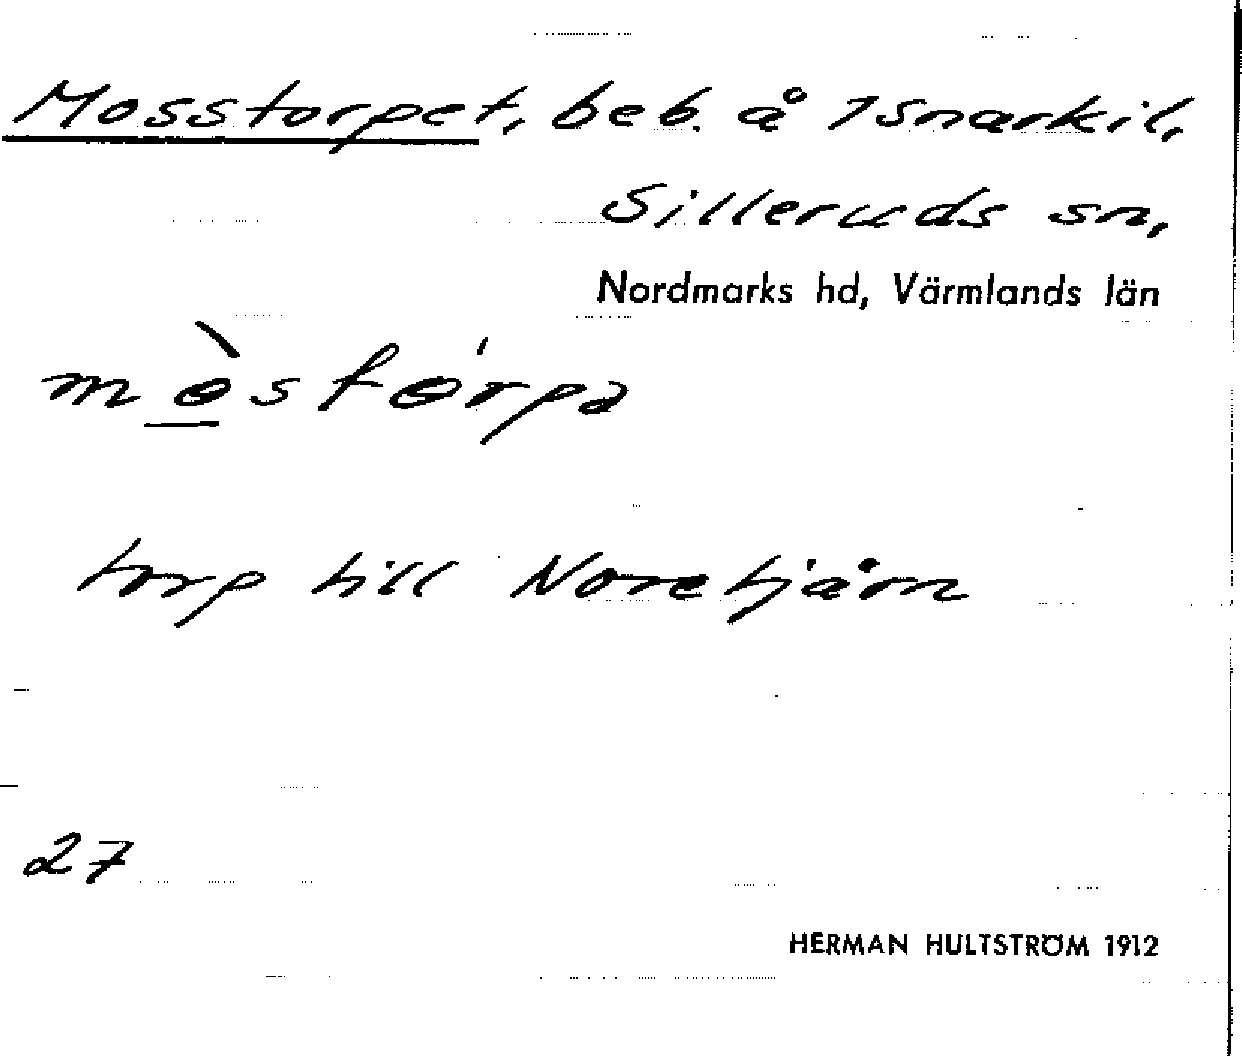 Mosstorpet, beb. å Isnarkil,
Silleruds sn,
Nordmarks hd, Värmlands län
mòstórpa
torp till Noretjärn
27
HERMAN HULTSTRÖM 1912